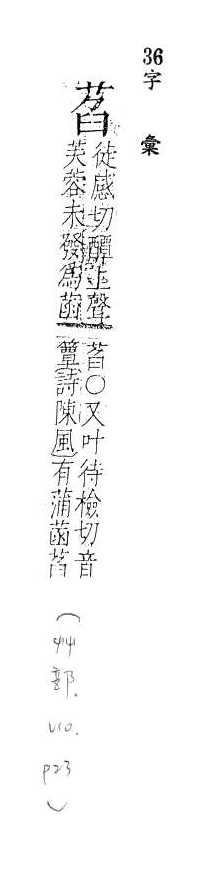 36字彙
萏
徒感切醰上聲
芙蓉未發爲菡
萏○又叶待檢切音
簟詩陳風有蒲菡萏
(艸部. V10. P23)